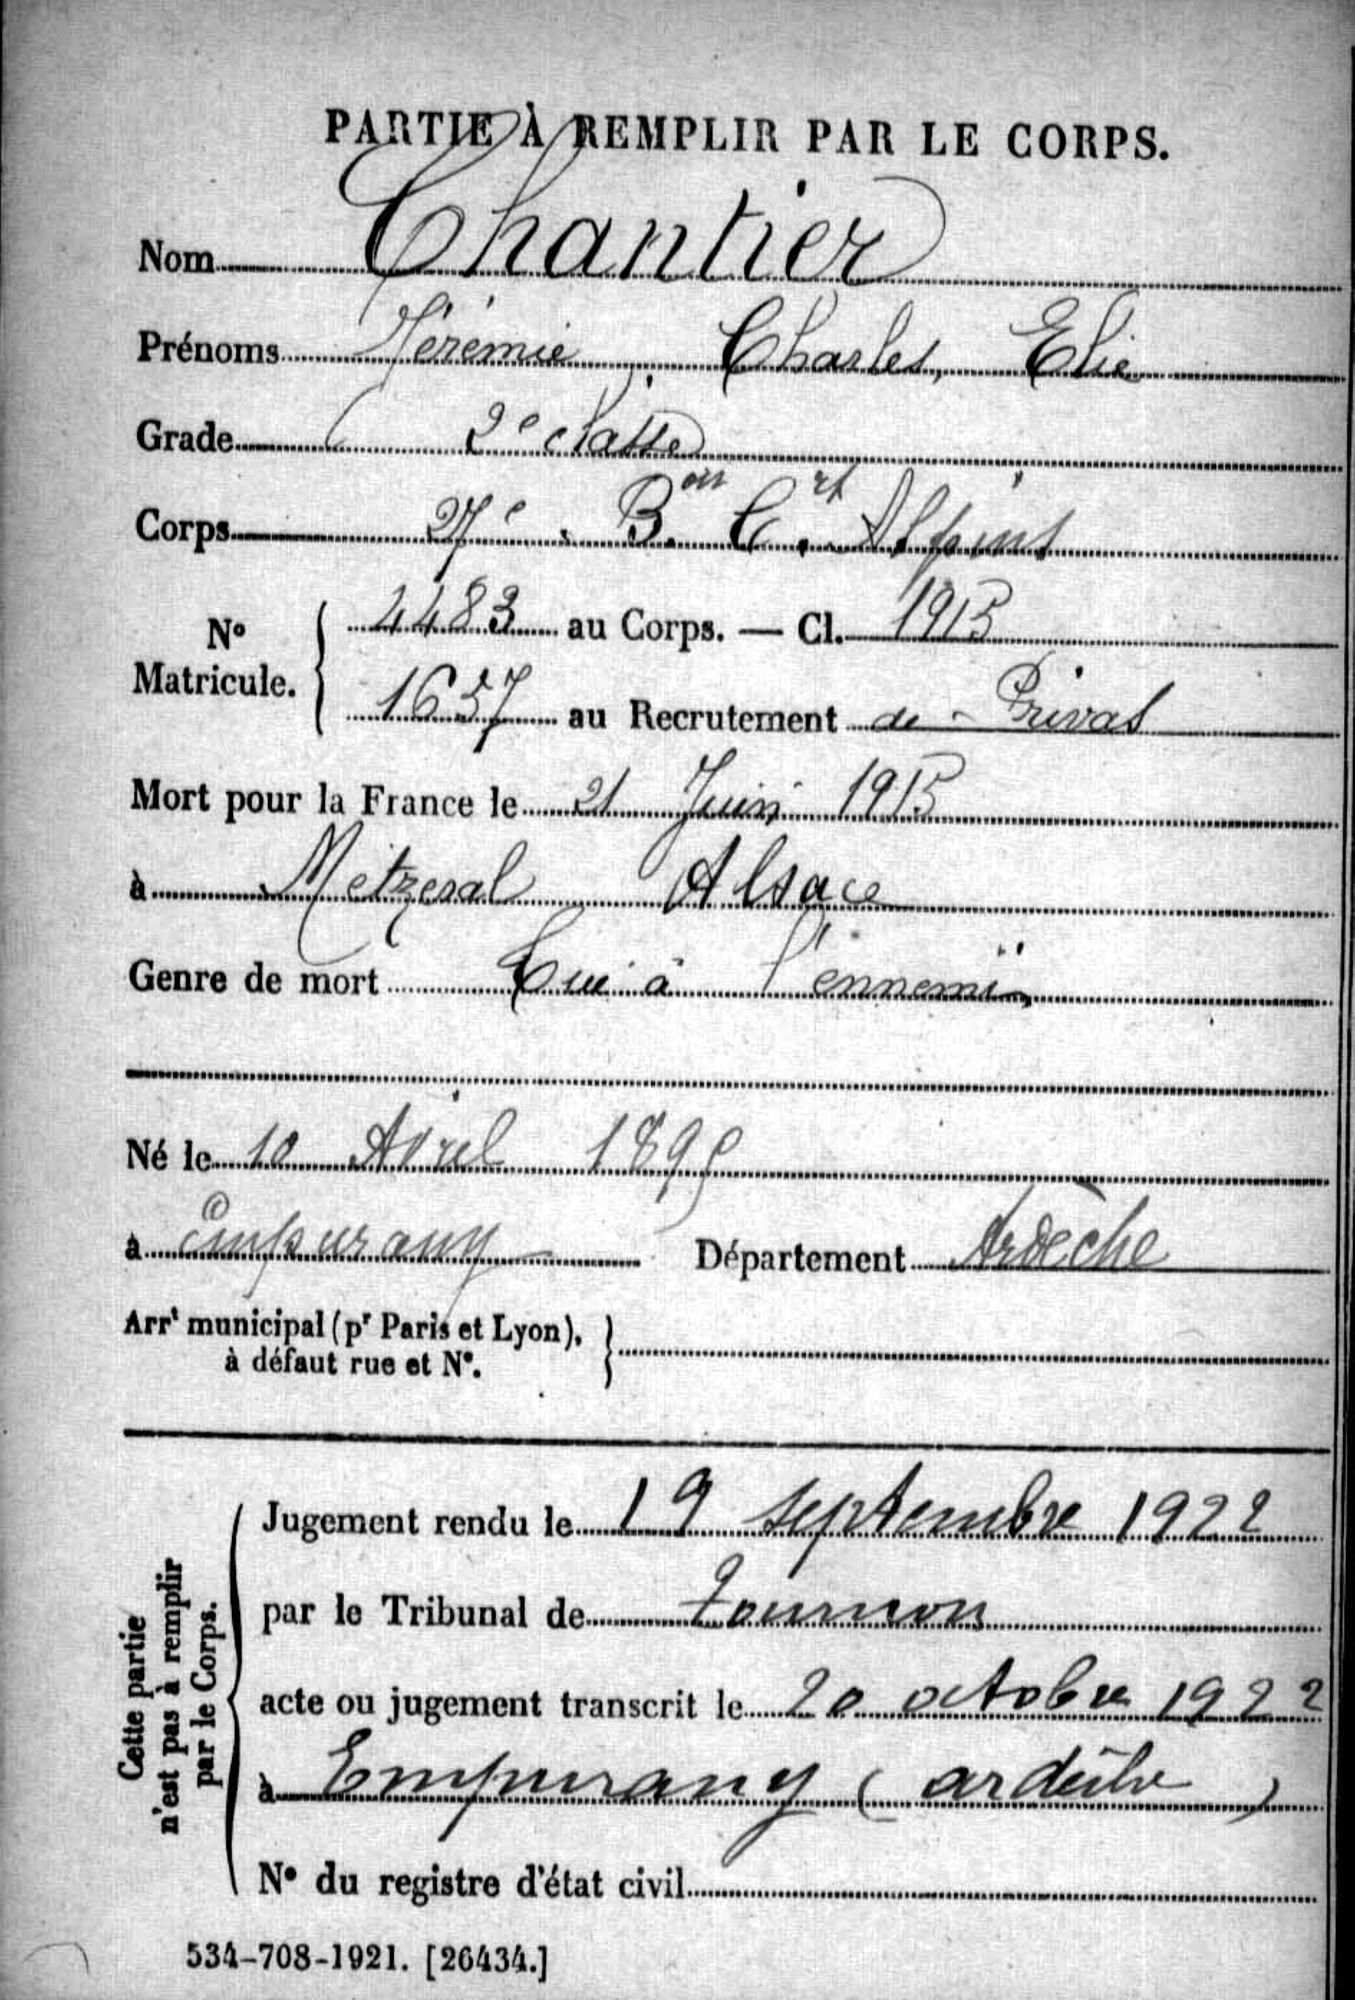 PARTIE À REMPLIR PAR LE CORPS.
Nom Chantier
Prénoms Jérémie, Charles, Elie
Grade 2e classe
Corps 27e . Bon C. rs Alpins
No Matricule. { 4483 au Corps. — Cl. 1915
1657 au Recrutement de - Privas
Mort pour la France le 21 Juin 1915
à Metzeral Alsace
Genre de mort Tué à l'ennemi
Né le 10 Avril 1895
à Empurany Département Ardèche
Arrt municipal (pr Paris et Lyon), à défaut rue et No. }
Cette partie n'est pas à remplir par le Corps.
Jugement rendu le 19 septembre 1922
par le Tribunal de Tournon
acte ou jugement transcrit le 20 octobre 1922
à Empurany (ardèche)
No du registre d'état civil
534-708-1921. [26434.]